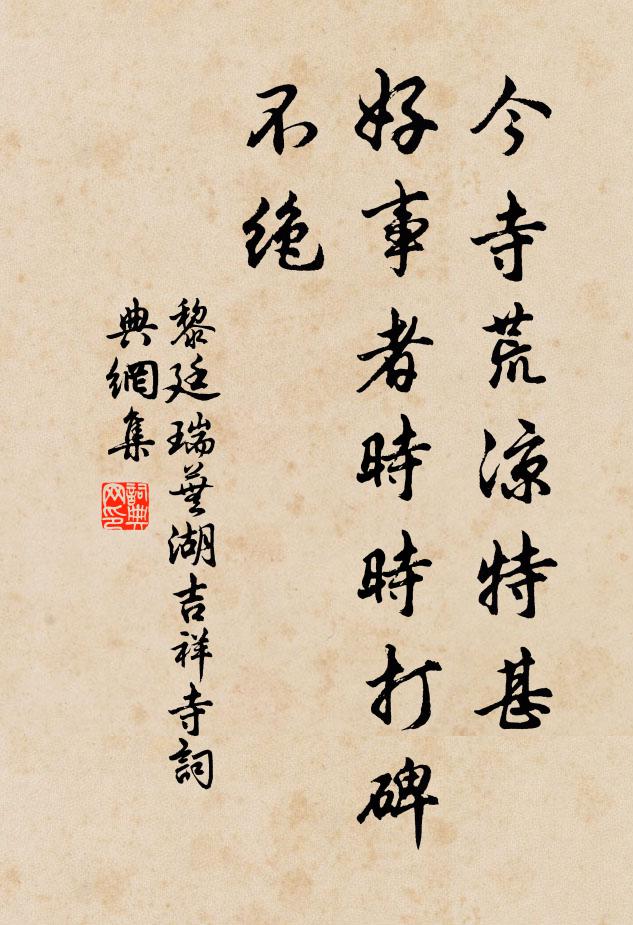 今寺荒凉特甚
好事者時時打碑
不绝
黎廷瑞蕪湖吉祥寺詞
典網集
詞典网印